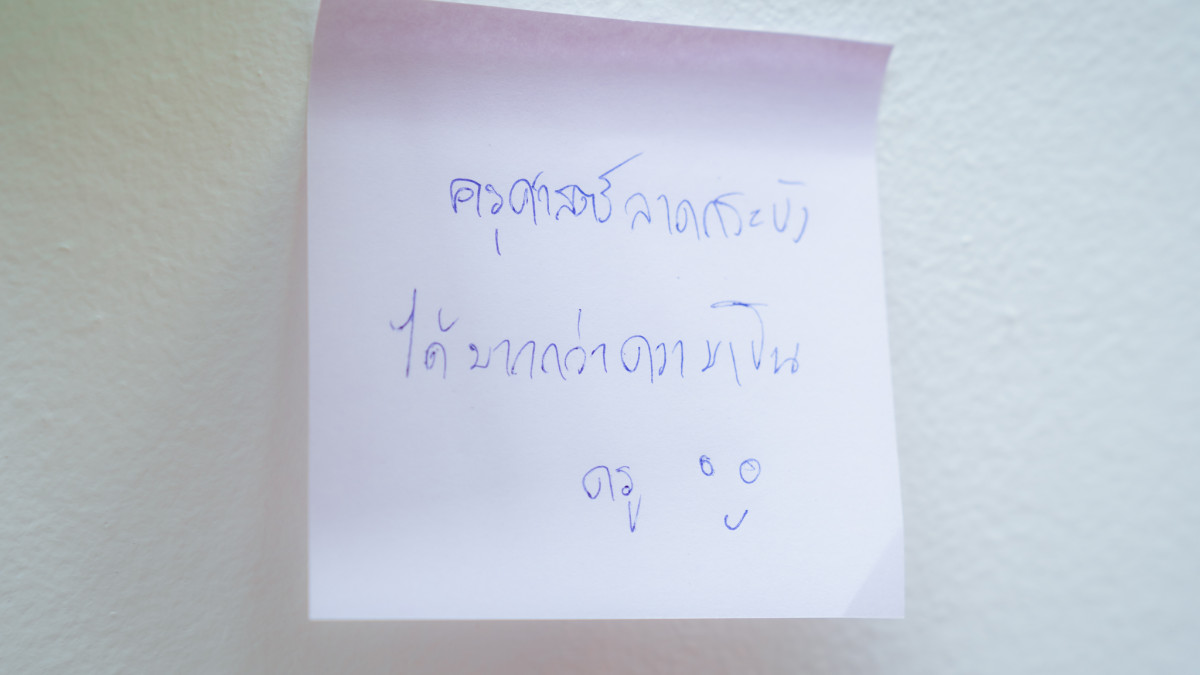 ครุศาสตร์ ลาดกระบัง
ได้มากกว่าความเป็น
ครู